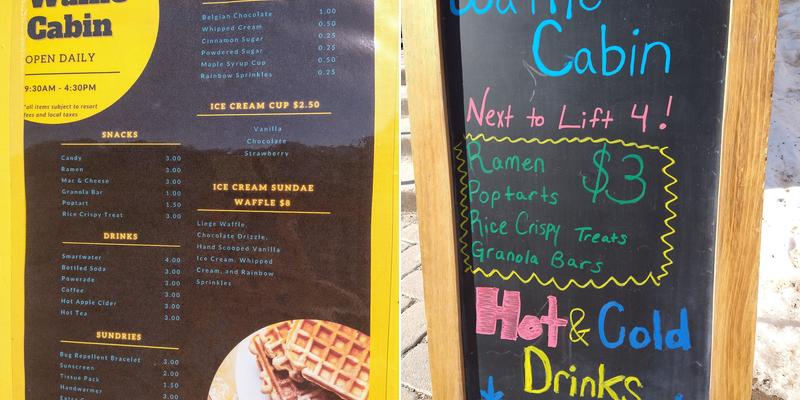 Cabin
OPEN DAILY
9:30AM - 4:30PM
*all items subject to resort
fees and local taxes
SNACKS
Candy 3.00
Ramen 3.00
Mac & Cheese 3.00
Granola Bar 1.00
Poptart 1.50
Rice Crispy Treat 3.00
DRINKS
Smartwater 4.00
Bottled Soda 3.00
Powerade 3.00
Coffee 3.00
Hot Apple Cider 3.00
Hot Tea 3.00
SUNDRIES
Bug Repellent Bracelet 3.00
Sunscreen 2.00
Tissue Pack 1.50
Handwarmer 3.00
Belgian Chocolate 1.00
Whipped Cream 0.50
Cinnamon Sugar 0.25
Powdered Sugar 0.25
Maple Syrup Cup 0.50
Rainbow Sprinkles 0.25
ICE CREAM CUP $2.50
Vanilla
Chocolate
Strawberry
ICE CREAM SUNDAE
WAFFLE $8
Liege Waffle,
Chocolate Drizzle,
Hand Scooped Vanilla
Ice Cream, Whipped
Cream, and Rainbow
Sprinkles
Waffle
Cabin
Next to Lift 4!
Ramen $3
Poptarts
Rice Crispy Treats
Granola Bars
Hot & Cold
Drinks